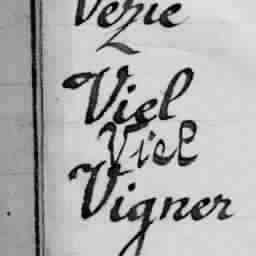 Vezie
Viel
Viel
Vigner